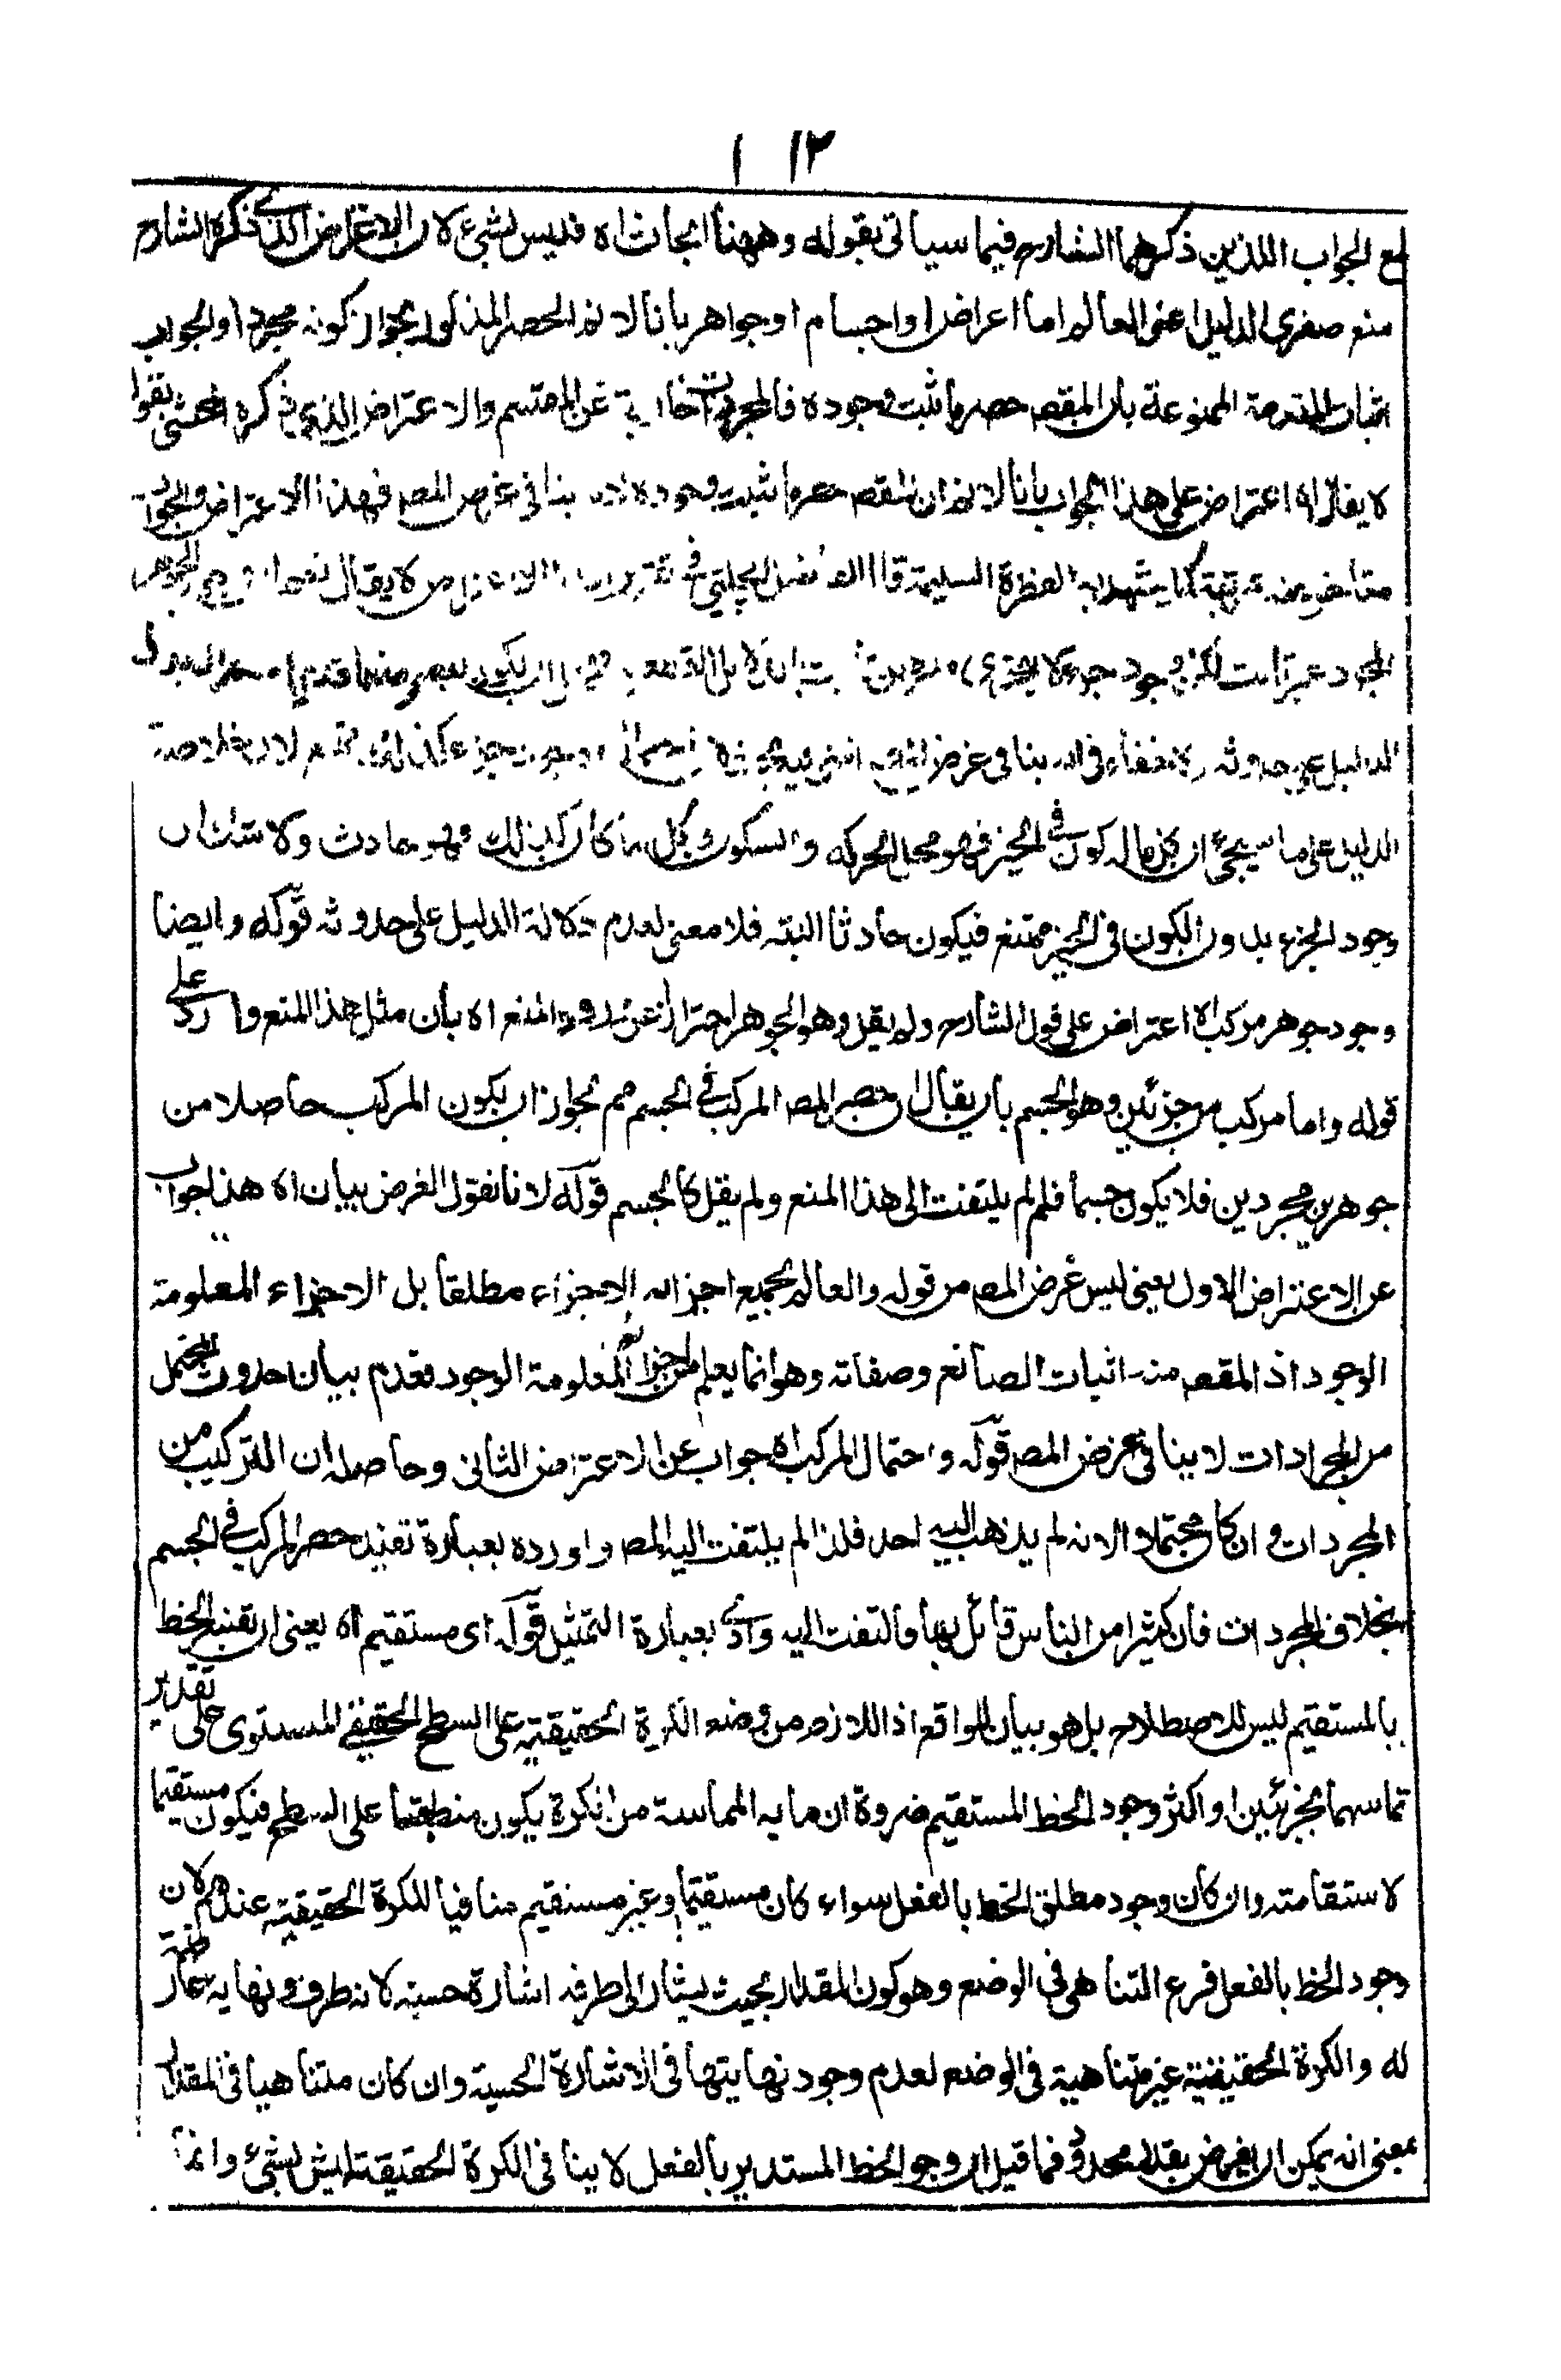 ١٢ ١
مع الجواب اللذين ذكرهما الشارح فيما سياتى بقوله وههنا ابحاث اه فليس بشيء لان الاعتراض الذى ذكره الشارح
منع صغرى الدليل اعنى العالم اما اعراض او اجسام او جواهر بانا لانم الحصر المذكور لجواز كونه مجردا والجواب
اثبات المقدمة الممنوعة بان المقصود حصر ما ثبت وجوده فالمجردات خارجة عن المقسم والاعتراض الذى ذكره المحشى بقوله
لا يقال اه اعتراض على هذا الجواب بانا لانم ان المقصود حصر ما ثبت وجوده لانه ينافى غرض المص فهذا الاعتراض والجواب
كما يشهد به الفطرة السليمة قال الفاضل الچلپى فى لا يقال
المجرد وجود جوهر لا يتجزى يكون بعض منها قديما
الدليل على حدوثه ولا خفاء فى انه ينافى غرض المص لان خلاصة
الدليل على ما سيجئ ان كل ما له كون فى الحيز فهو محل الحركة والسكون وكل ما كان كذلك فهو حادث ولا شك ان
وجود الجزء بدون الكون فى الحيز ممتنع فيكون حادثا البته فلا معنى لعدم دلالة الدليل على حدوثه قوله وايضا
وجود جوهر مركب اه اعتراض على قول الشارح ولم يقل وهو الجوهر احترازا عن ورود المنع اه بان مثل هذا المنع وارد على
قوله واما مركب من جزئين وهو الجسم بان يقال ان حصر المص المركب فى الجسم مم لجواز ان يكون المركب حاصلا من
جوهرين مجردين فلا يكون جسما فلم لم يلتفت الى هذا المنع ولم يقل كالجسم قوله لانا نقول الغرض بيان اه هذا جواب
عن الاعتراض الاول يعنى ليس غرض المص من قوله والعالم بجميع اجزائه الاجزاء مطلقا بل الاجزاء المعلومة
الوجود اذ المقصود منه اثبات الصانع وصفاته وهو انما يعلم من اجزائه المعلومة الوجود فعدم بيان حدوث المحتمل
من المجردات لا ينافى غرض المص قوله واحتمال المركب اه جواب عن الاعتراض الثانى وحاصله ان التركيب من
المجردات وان كان محتملا الا انه لم يذهب اليه احد فلذا لم يلتفت اليه المص واورده بعبارة تفيد حصر المركب فى الجسم
بخلاف المجردات فان كثيرا من الناس قائل بها فالتفت اليه واتى بعبارة التمثيل قوله اى مستقيم اه يعنى ان تقييد الخط
بالمستقيم ليس للاصطلاح بل هو بيان للواقع اذ اللازم من وضع الكرة الحقيقية على السطح الحقيقى المستوى على تقدير
تماسهما بجزئين او اكثر وجود الخط المستقيم ضرورة ان ما به المماسة من الكرة يكون منطبقا على السطح فيكون مستقيما
لاستقامته وان كان وجود مطلق الخط بالفعل سواء كان مستقيما وغير مستقيم منافيا للكرة الحقيقية عندهم لان
وجود الخط بالفعل فرع التناهى فى الوضع وهو كون المقدار بحيث يشار الى طرفه اشارة حسية لانه طرف ونهاية
له والكرة الحقيقية غير متناهية فى الوضع لعدم وجود نهايتها فى الاشارة الحسية وان كان متناهيا فى المقدار
بمعنى انه يمكن ان يفرض بقدر محدود فما قيل ان وجود الخط المستدير بالفعل لا ينافى الكرة الحقيقة ليس بشيء وانما